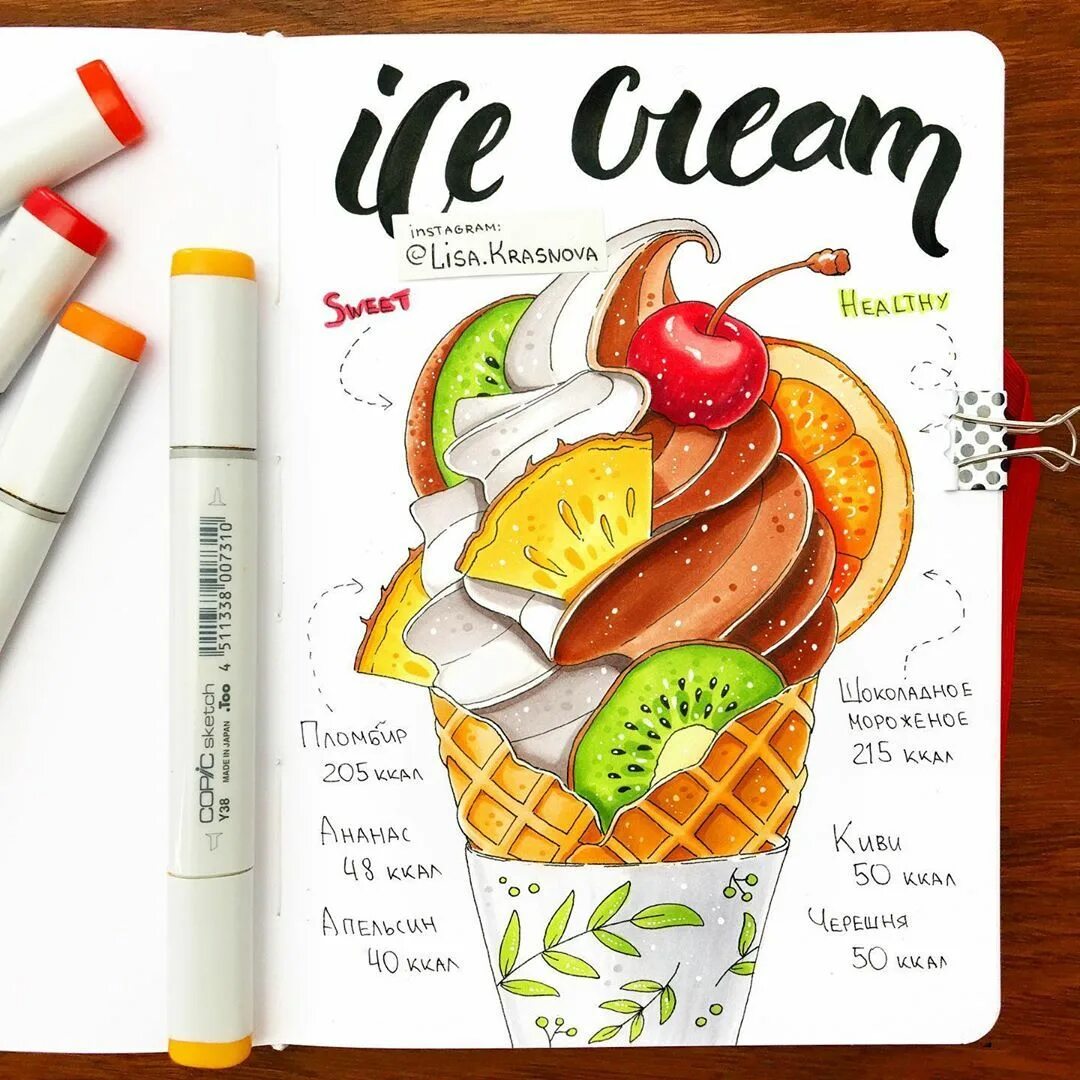 ice cream
INSTAGRAM:
@LISA.KRASNOVA
SWEET
HEALTHY
Пломбир
205 ккал
Ананас
48 ккал
Апельсин
40 ккал
Шоколадное
мороженое
215 ккал
Киви
50 ккал
Черешня
50 ккал
COPIC sketch .Too
Y38 MADE IN JAPAN
4 511338 007310